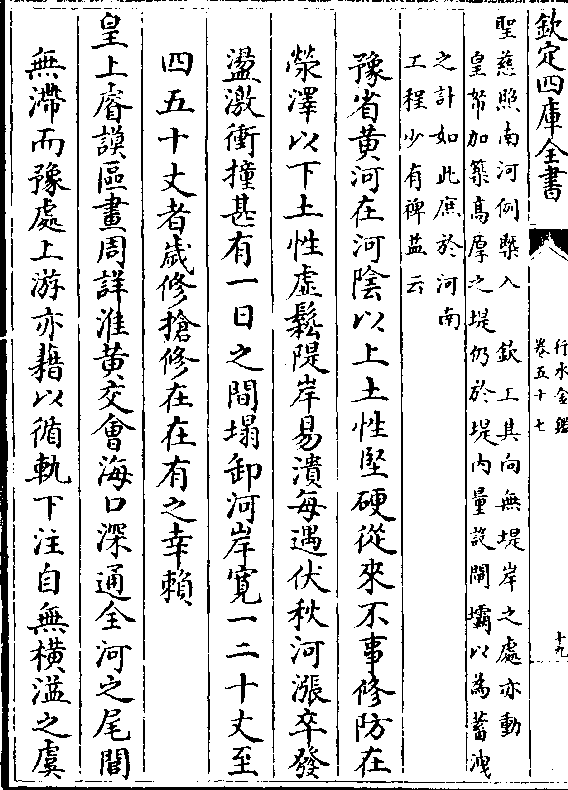 欽定四庫全書
行水金鑑
卷五十七
十九
聖慈照南河例槩入 欽工其向無堤岸之處亦動
皇帑加築高厚之堤仍於堤内量設閘壩以為蓄洩
之計如此庶於河南
工程少有裨益云
豫省黃河在河陰以上土性堅硬從來不事修防在
滎澤以下土性虛鬆隄岸易潰每遇伏秋河漲卒發
盪激衝撞甚有一日之間塌卸河岸寬一二十丈至
四五十丈者歲修搶修在在有之幸賴
皇上睿謨區畫周詳淮黃交會海口深通全河之尾閭
無滯而豫處上游亦藉以循軌下注自無橫溢之虞